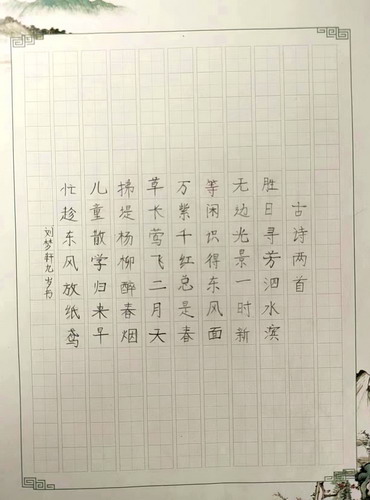 古诗两首
胜日寻芳泗水滨
无边光景一时新
等闲识得东风面
万紫千红总是春
草长莺飞二月天
拂堤杨柳醉春烟
儿童散学归来早
忙趁东风放纸鸢
刘梦轩九岁书